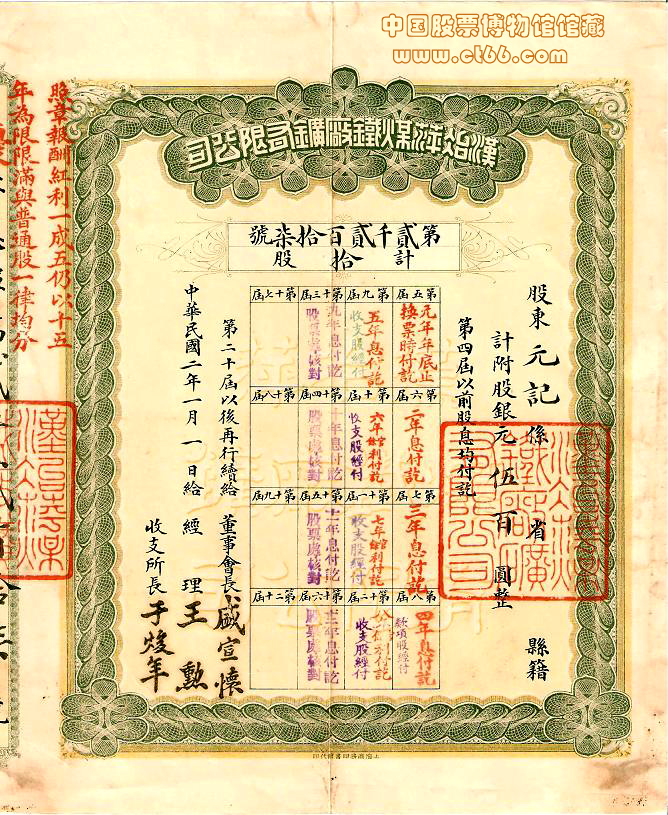 中国股票博物馆馆藏
www.ct66.com
漢冶萍煤鐵廠鑛有限公司
第貳千貳百拾柒號
計拾股
股東元記係省縣籍
計附股銀元伍百圓整
第四屆以前股息均付訖
第五屆
元年年底止換票時付訖
第六屆
二年息付訖
第七屆
三年息付訖
第八屆
四年息付訖
款項股經付
第九屆
五年息付訖
收支股經付
第十屆
六年官利付訖
收支股經付
第十一屆
七年官利付訖
收支股經付
第十二屆
收支股經付
第十三屆
九年息付訖
股票處核對
第十四屆
十年息付訖
股票處核對
第十五屆
十一年息付訖
股票處核對
第十六屆
十二年息付訖
股票處核對
第十七屆
第十八屆
第十九屆
第二十屆
第二十屆以後再行續給
中華民國二年一月一日給
董事會長盛宣懷
經理王勲
收支所長于焌年
照章報酬紅利一成五仍以十五
年為限限滿與普通股一律均分
上海商務印書館代印